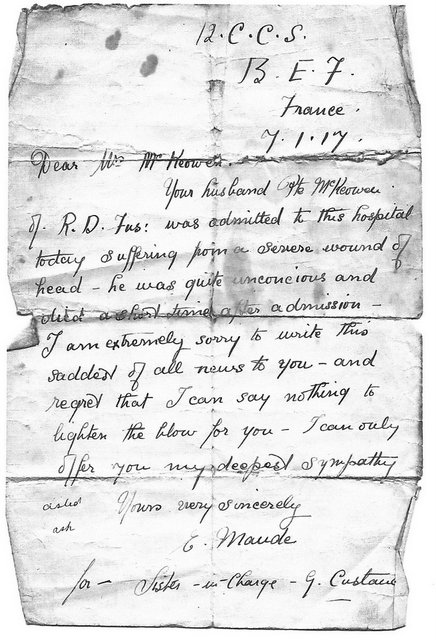 12. C. C. S.
B. E. F.
France.
7.1.17.
Dear Mrs McKeowen.
Your husband Pte McKeowen.
of R. D. Fus: was admitted to this hospital
today suffering from a severe wound of
head – he was quite unconcious and
died a short time after admission –
I am extremely sorry to write this
saddest of all news to you – and
regret that I can say nothing to
lighten the blow for you – I can only
offer you my deepest sympathy
Yours very sincerely
E. Maude
for – Sister-in-Charge – G.